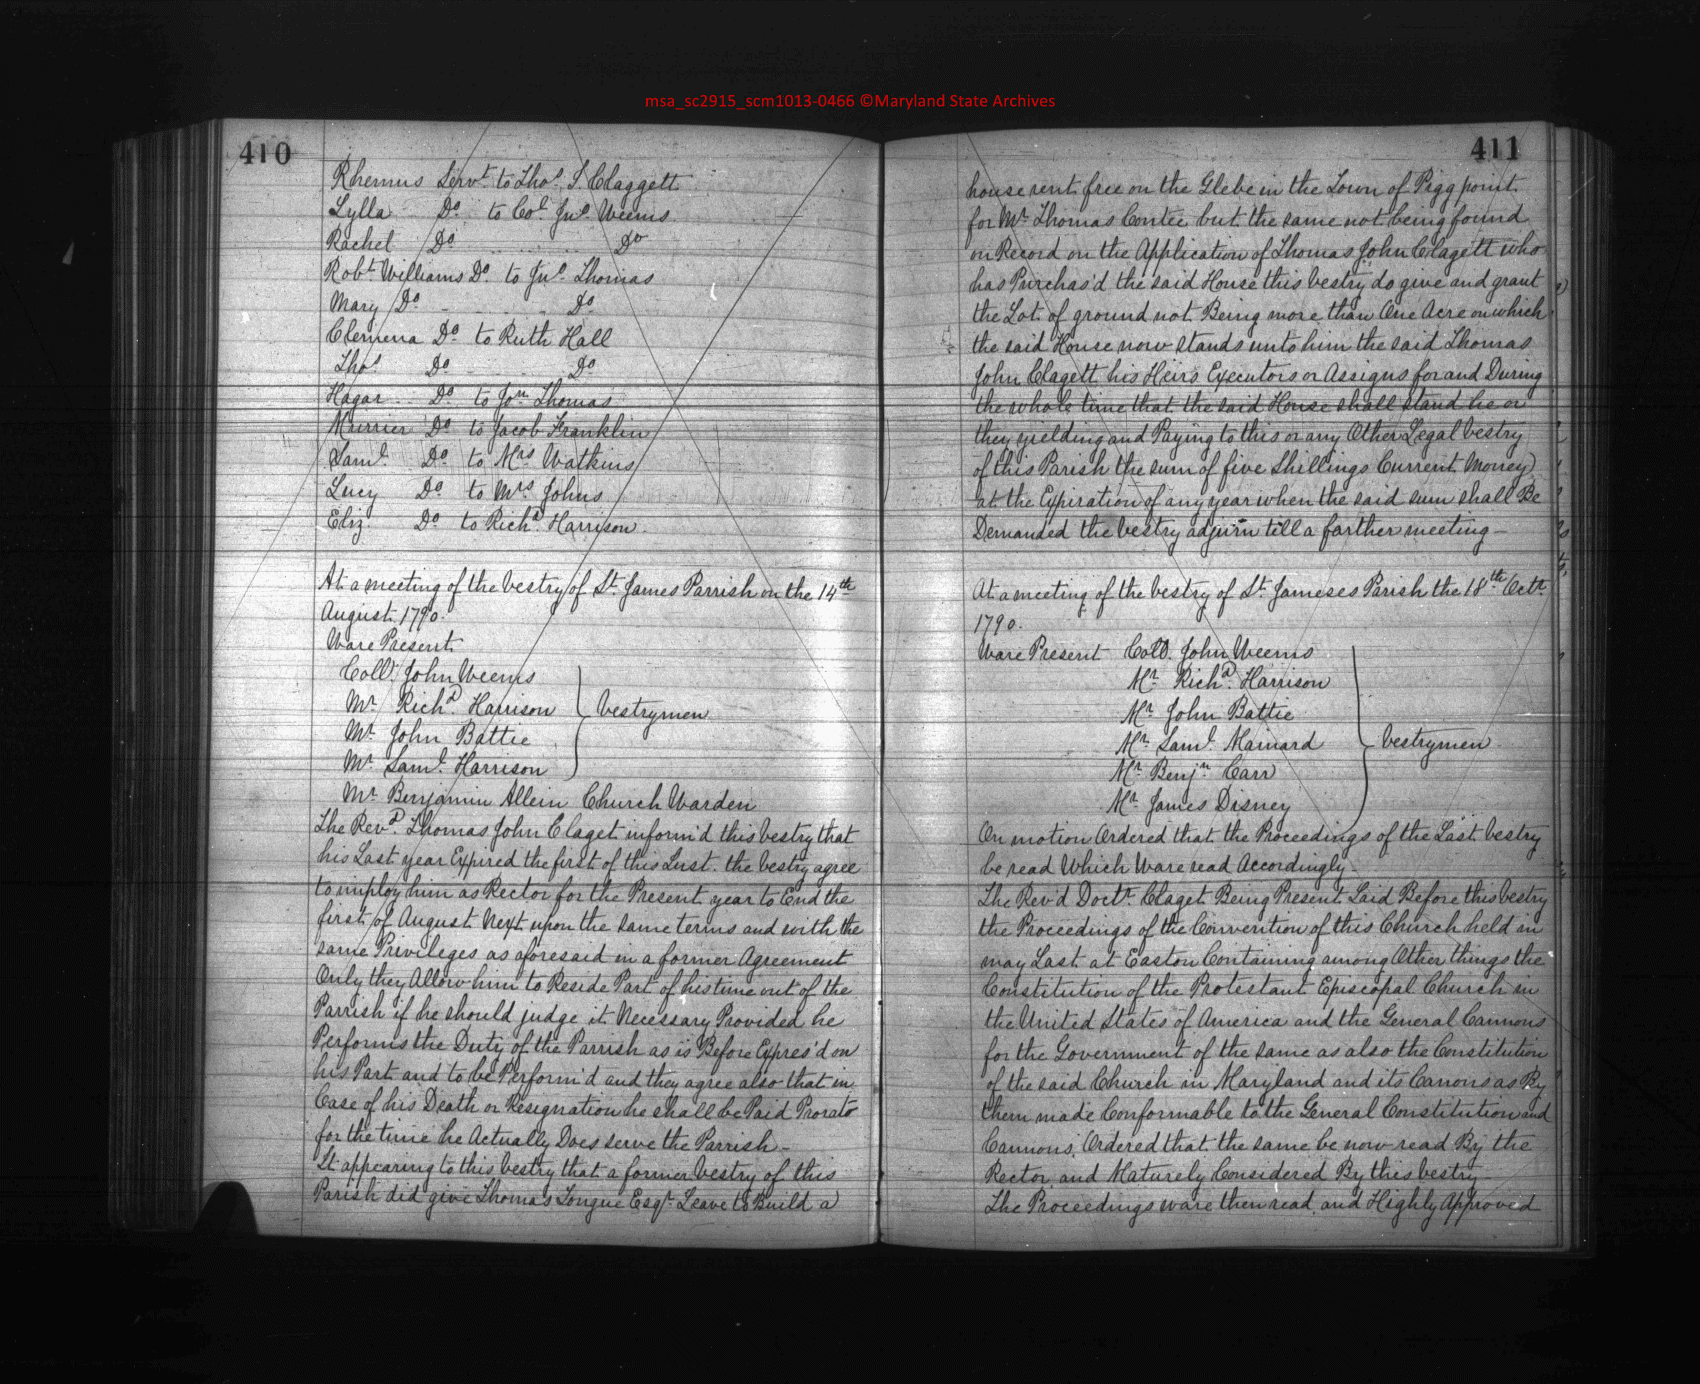 msa_sc2915_scm1013-0466 ©Maryland State Archives
410
Rhemus Servt to Thos. S Claggett
Lylla Do. to Col Jno Weems
Rachel Do Do
Robt Williams Do. to Jno. Thomas
Mary Do. Do
Clemena Do to Ruth Hall
Thos Do Do
Hagar Do to Jon Thomas
Murrier Do to Jacob Franklin
Saml. Do to Mrs Watkins
Lucy Do to Mrs Johns
Eliz. Do to Richd Harrison.
At a meeting of the vestry of St. James Parrish on the 14th
August 1790.
Ware Present
Coll. John Weems
Mr Richd. Harrison
Vestrymen
Mr. John Battie
Mr Saml. Harrison
Mr Benjamin Allein Church Warden
The Revd. Thomas John Claget inform'd this vestry that
his Last year Expired the first of this Inst. the vestry agree
to imploy him as Rector for the Present year to End the
first of August Next upon the same terms and with the
same Privileges as aforesaid in a former Agreement
Only they Allow him to Reside Part of his time out of the
Parrish if he should judge it Necessary Provided he
Performs the Duty of the Parrish as is Before Expres'd on
his Part and to be Perform'd and they agree also that in
Case of his Death or Resignation he shall be Paid Prorato
for the time he Actually Does serve the Parrish -
It appearing to this vestry that a former vestry of this
Parish did give Thomas Tongue Esqr. Leave to Build a
411
house rent free on the Glebe in the Town of Pigg point
for Mr Thomas Contee but the same not being found
on Record on the Application of Thomas John Clagett who
has Purchas'd the said House this vestry do give and grant
the Lot of ground not Being more than One Acre on which
the said House now stands unto him the said Thomas
John Clagett his Heirs Executors or Assigns for and During
the whole time that the said House shall stand he or
they yielding and Paying to this or any Other Legal vestry
of this Parish the sum of five Shillings Current Money
at the Expiration of any year when the said sum shall Be
Demanded the vestry adjurn till a farther meeting -
At a meeting of the vestry of St. Jameses Parish the 18th Octr.
1790.
Ware Present Coll. John Weems
Mr Richd. Harrison
Mr John Battie
Mr Saml. Mainard
Vestrymen
Mr Benjn Carr
Mr James Disney
On motion Ordered that the Proceedings of the Last vestry
be read Which Ware read Accordingly -
The Rev'd Doctr. Claget Being Present Laid Before this vestry
the Proceedings of the Convention of this Church held in
may Last at Easton Containing among Other things the
Constitution of the Protestant Episcopal Church in
the United States of America and the General Cannons
for the Government of the same as also the Constitution
of the said Church in Maryland and its Canons as By
them made Conformable to the General Constitution and
Cannons, Ordered that the same be now read By the
Rector and Maturely Considered By this vestry -
The Proceedings ware then read and Highly Approved